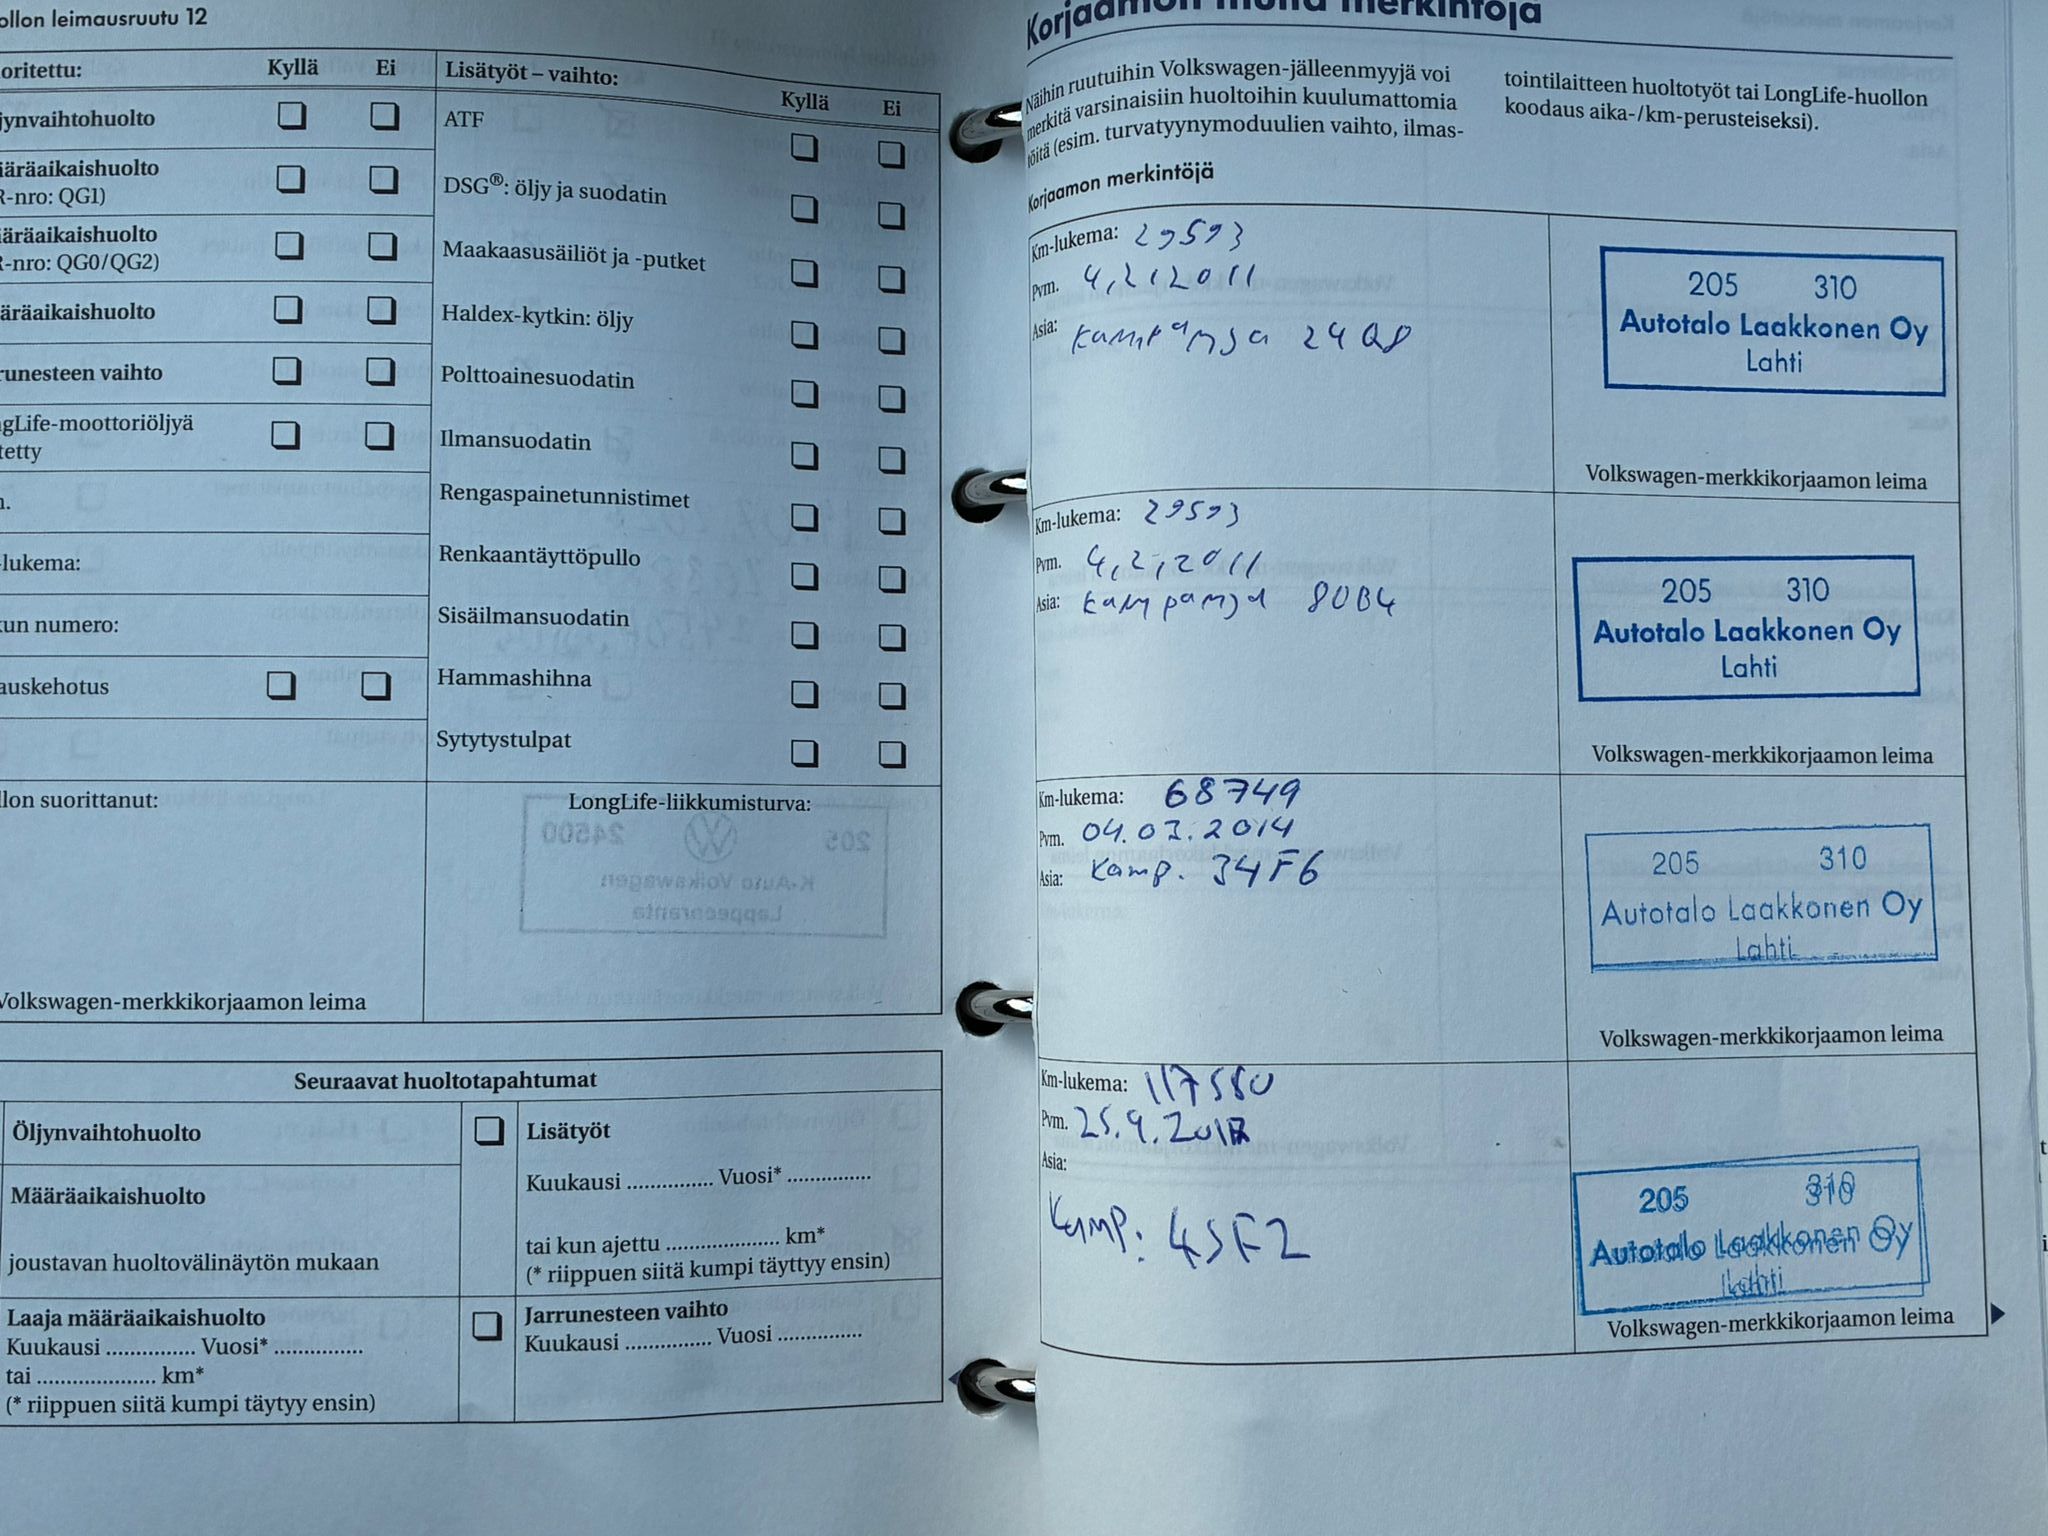 ollon leimausruutu 12
oritettu: Kyllä Ei
jynvaihtohuolto
ääräaikaishuolto
R-nro: QG1)
ääräaikaishuolto
R-nro: QG0/QG2)
äräaikaishuolto
runesteen vaihto
gLife-moottoriöljyä
tetty
lukema:
kun numero:
auskehotus
llon suorittanut:
Volkswagen-merkkikorjaamon leima
Lisätyöt – vaihto: Kyllä Ei
ATF
DSG®: öljy ja suodatin
Maakaasusäiliöt ja -putket
Haldex-kytkin: öljy
Polttoainesuodatin
Ilmansuodatin
Rengaspainetunnistimet
Renkaantäyttöpullo
Sisäilmansuodatin
Hammashihna
Sytytystulpat
LongLife-liikkumisturva:
Seuraavat huoltotapahtumat
Öljynvaihtohuolto
Määräaikaishuolto
joustavan huoltovälinäytön mukaan
Laaja määräaikaishuolto
Kuukausi ............... Vuosi* ...............
tai .................... km*
(* riippuen siitä kumpi täytyy ensin)
Lisätyöt
Kuukausi ............... Vuosi* ...............
tai kun ajettu .................... km*
(* riippuen siitä kumpi täyttyy ensin)
Jarrunesteen vaihto
Kuukausi ............... Vuosi ...............
Korjaamon muita merkintöjä
Näihin ruutuihin Volkswagen-jälleenmyyjä voi
merkitä varsinaisiin huoltoihin kuulumattomia
töitä (esim. turvatyynymoduulien vaihto, ilmas-
tointilaitteen huoltotyöt tai LongLife-huollon
koodaus aika-/km-perusteiseksi).
Korjaamon merkintöjä
Km-lukema: 29593
Pvm. 4.2.2011
Asia: Kampanja 24Q8
205 310
Autotalo Laakkonen Oy
Lahti
Volkswagen-merkkikorjaamon leima
Km-lukema: 29593
Pvm. 4.2.2011
Asia: Kampanja 80B4
205 310
Autotalo Laakkonen Oy
Lahti
Volkswagen-merkkikorjaamon leima
Km-lukema: 68749
Pvm. 04.03.2014
Asia: Kamp. 34F6
205 310
Autotalo Laakkonen Oy
Lahti
Volkswagen-merkkikorjaamon leima
Km-lukema: 117580
Pvm. 25.9.2017
Asia:
Kamp: 45F2
205 310
Autotalo Laakkonen Oy
Lahti
Volkswagen-merkkikorjaamon leima